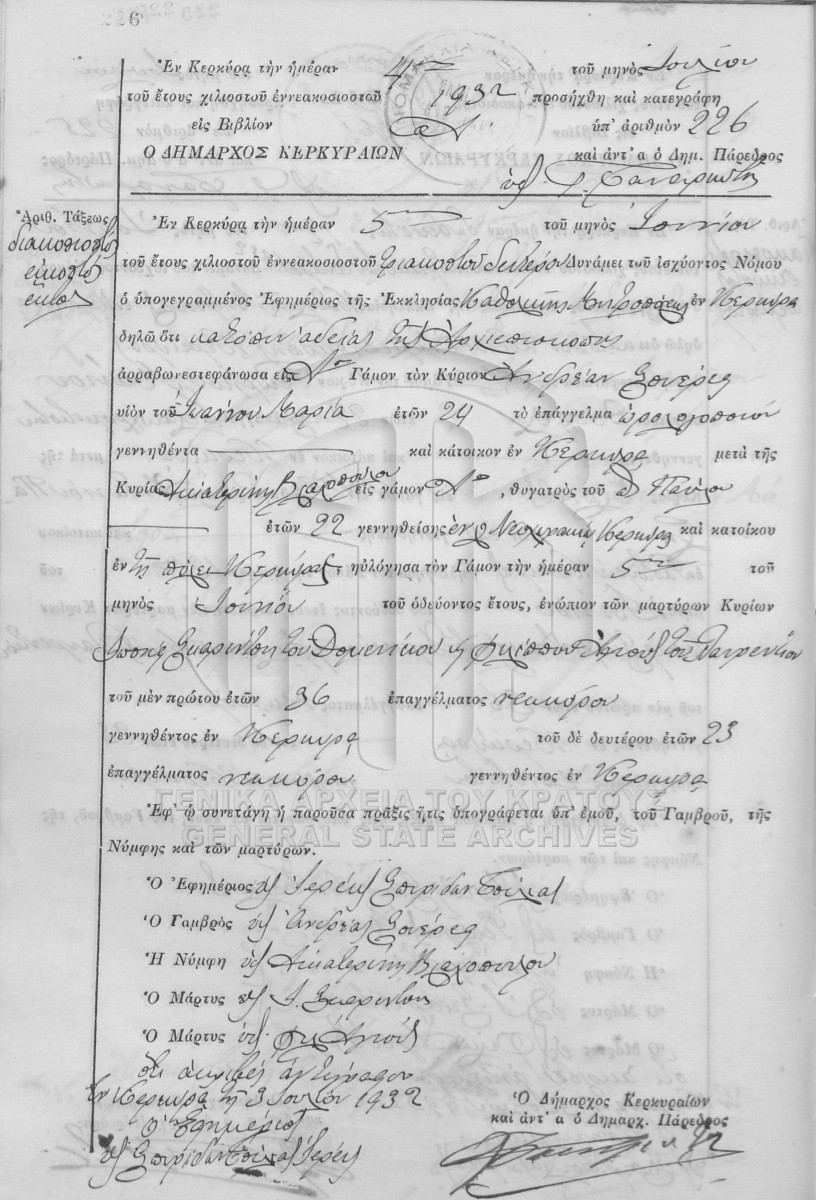 6
Ἐν Κερκύρᾳ τὴν ἡμέραν 4ην τοῦ μηνὸς Ἰουλίου
τοῦ ἔτους χιλιοστοῦ ἐννεακοσιοστοῦ 1932 προσήχθη καὶ κατεγράφη
εἰς Βιβλίον ὑπ' ἀριθμὸν 226
Ο ΔΗΜΑΡΧΟΣ ΚΕΡΚΥΡΑΙΩΝ καὶ ἀντ' α ὁ Δημ. Πάρεδρος
Ἀριθ. Τάξεως
διακοσιοστὸν
εἰκοστὸν
ἕκτον
Ἐν Κερκύρᾳ τὴν ἡμέραν 5ην τοῦ μηνὸς Ἰουνίου
τοῦ ἔτους χιλιοστοῦ ἐννεακοσιοστοῦ τριακοστοῦ δευτέρου Δυνάμει τοῦ ἰσχύοντος Νόμου
ὁ ὑπογεγραμμένος Ἐφημέριος τῆς Ἐκκλησίας Καθολικῆς Μητροπόλεως ἐν Κερκύρᾳ
δηλῶ ὅτι κατόπιν ἀδείας τῆς Ἀρχιεπισκοπῆς
ἀρραβωνεστεφάνωσα εἰς Αον Γάμον τὸν Κύριον Ἀνδρέαν
υἱὸν τοῦ Ἰωάννου Μαρία ἐτῶν 24 τὸ ἐπάγγελμα ὡρολογοποιὸν
γεννηθέντα καὶ κάτοικον ἐν Κερκύρᾳ μετὰ τῆς
Κυρίας Αἰκατερίνης Βλαχοπούλου εἰς γάμον Αον, θυγατρὸς τοῦ Παύλου
ἐτῶν 22 γεννηθείσης Κερκύρας καὶ κατοίκου
ἐν τῇ πόλει Κερκύρας, ηὐλόγησα τὸν Γάμον τὴν ἡμέραν 5ην τοῦ
μηνὸς Ἰουνίου τοῦ ὁδεύοντος ἔτους, ἐνώπιον τῶν μαρτύρων Κυρίων
Ἰωσὴφ τοῦ Δομενίκου Φιλίππου τοῦ Λαυρεντίου
τοῦ μὲν πρώτου ἐτῶν 36 ἐπαγγέλματος νεωκόρου
γεννηθέντος ἐν Κερκύρᾳ τοῦ δὲ δευτέρου ἐτῶν 23
ἐπαγγέλματος νεωκόρου γεννηθέντος ἐν Κερκύρᾳ
ΓΕΝΙΚΑ ΑΡΧΕΙΑ ΤΟΥ ΚΡΑΤΟΥΣ
Ἐφ' ᾧ συνετάγη ἡ παροῦσα πρᾶξις ἥτις ὑπογράφεται ὑπ' ἐμοῦ, τοῦ Γαμβροῦ, τῆς
GENERAL STATE ARCHIVES
Νύμφης καὶ τῶν μαρτύρων.
Ὁ Ἐφημέριος Ἱερεὺς Σπυρίδων
Ὁ Γαμβρὸς Ἀνδρέας
Ἡ Νύμφη Αἰκατερίνη Βλαχοπούλου
Ὁ Μάρτυς
Ὁ Μάρτυς
ὅτι ἀκριβὲς ἀντίγραφον
Ἐν Κερκύρᾳ τῇ 3 Ἰουλίου 1932
ὁ Ἐφημέριος
Σπυρίδων Ἱερεὺς
Ὁ Δήμαρχος Κερκυραίων
καὶ ἀντ' α ὁ Δημαρχ. Πάρεδρος